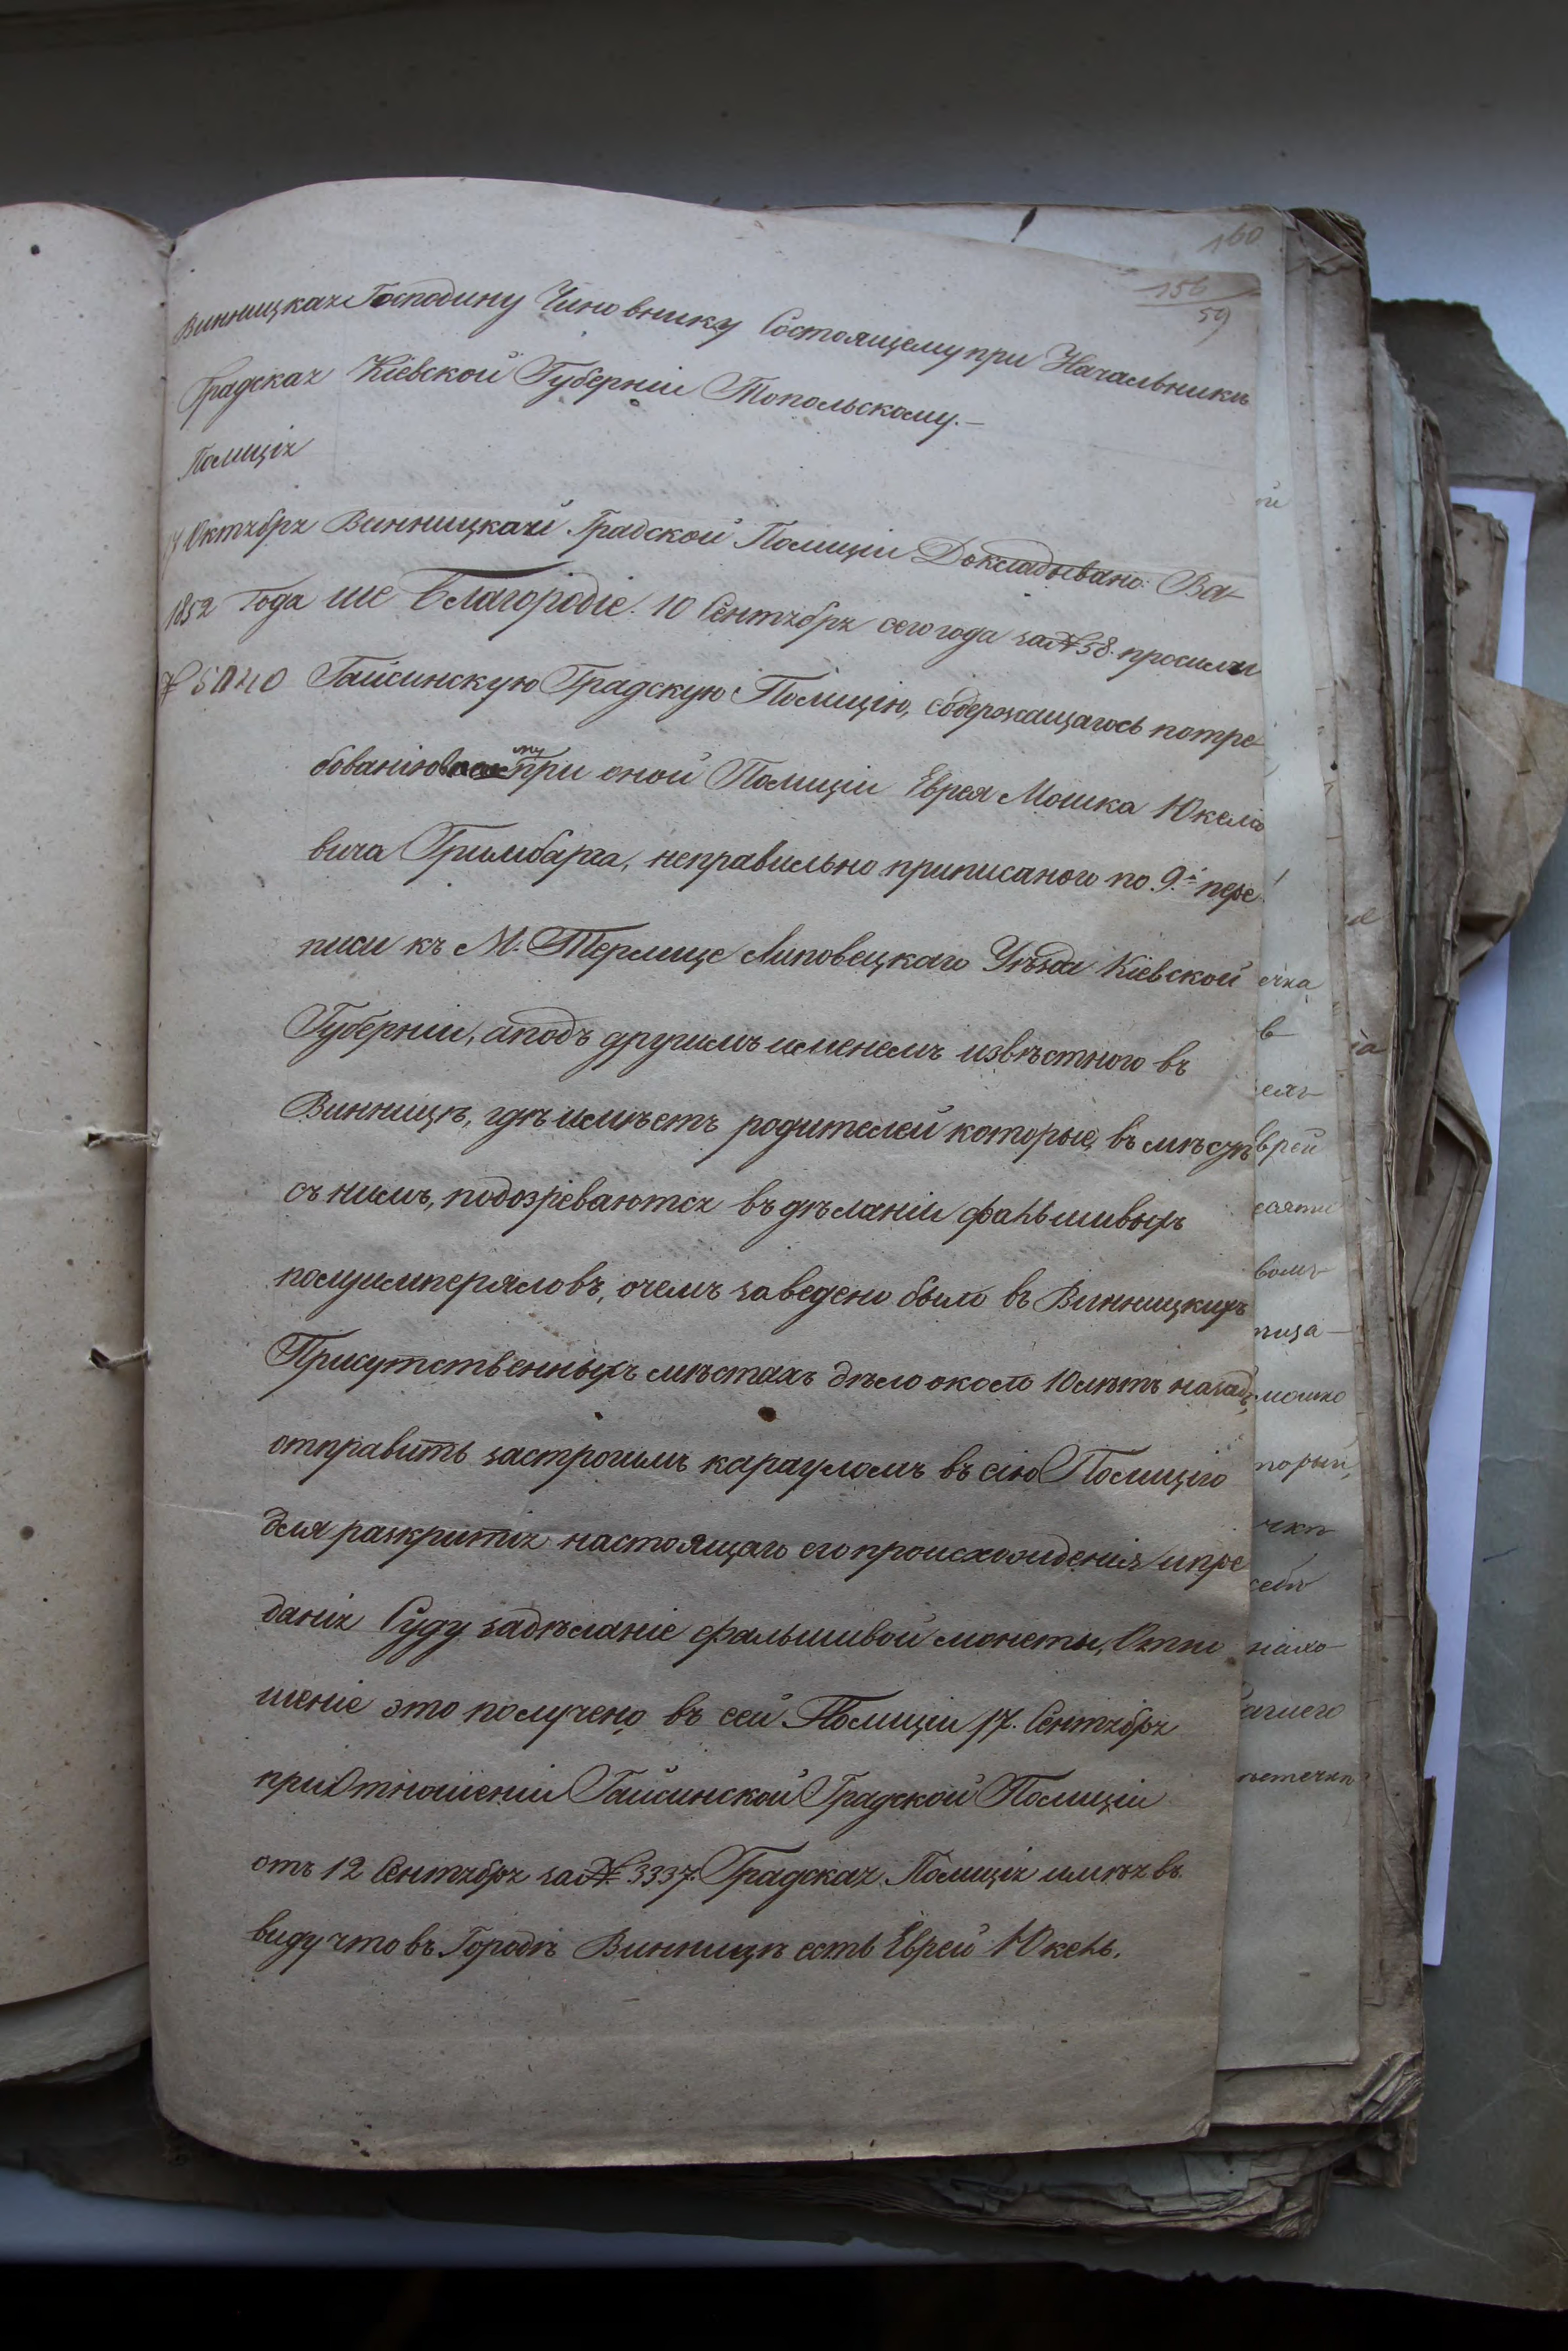 160
156
59
Винницкая
Градская
Полиція
Октября
1852 Года
№ 5040
Господину Чиновнику Состоящему при Начальникѣ
Кіевской Губерніи Топольскому.—
Винницкой Градской Полиціи Докладывано: Ва-
ше Благородіе. 10 Сентября сего года за №58. просили
Гайсинскую Градскую Полицію, содержащагось потре-
бованію при оной Полиціи Еврея Мошка Юкело
вича Гримбарга, неправильно приписаного по 9й пере
писи къ М. Терлице Липовецкаго Уѣзда Кіевской
Губерніи, аподъ другимъ именемъ извѣстного въ
Винницѣ, гдѣ имѣетъ родителей которые, въ мѣстѣ
съ нимъ, подозреваются въ дѣланіи фальшивыхъ
полуимперяловъ, очемъ заведено было въ Винницкихъ
Присутственныхъ мѣстахъ дѣло около 10 лѣтъ назадъ,
отправить застрогимъ карауломъ въ сію Полицію
для разкритія настоящаго его происхожденія ипре
данія Суду задѣланіе фальшивой монеты, Отно
шеніе это получено въ сей Полиціи 17. Сентября
при Отношеніи Гайсинской Градской Полиціи
отъ 12 Сентября за №. 3337. Градская Полиція имѣя въ
виду что въ Городѣ Винницѣ есть Еврей Юкель.